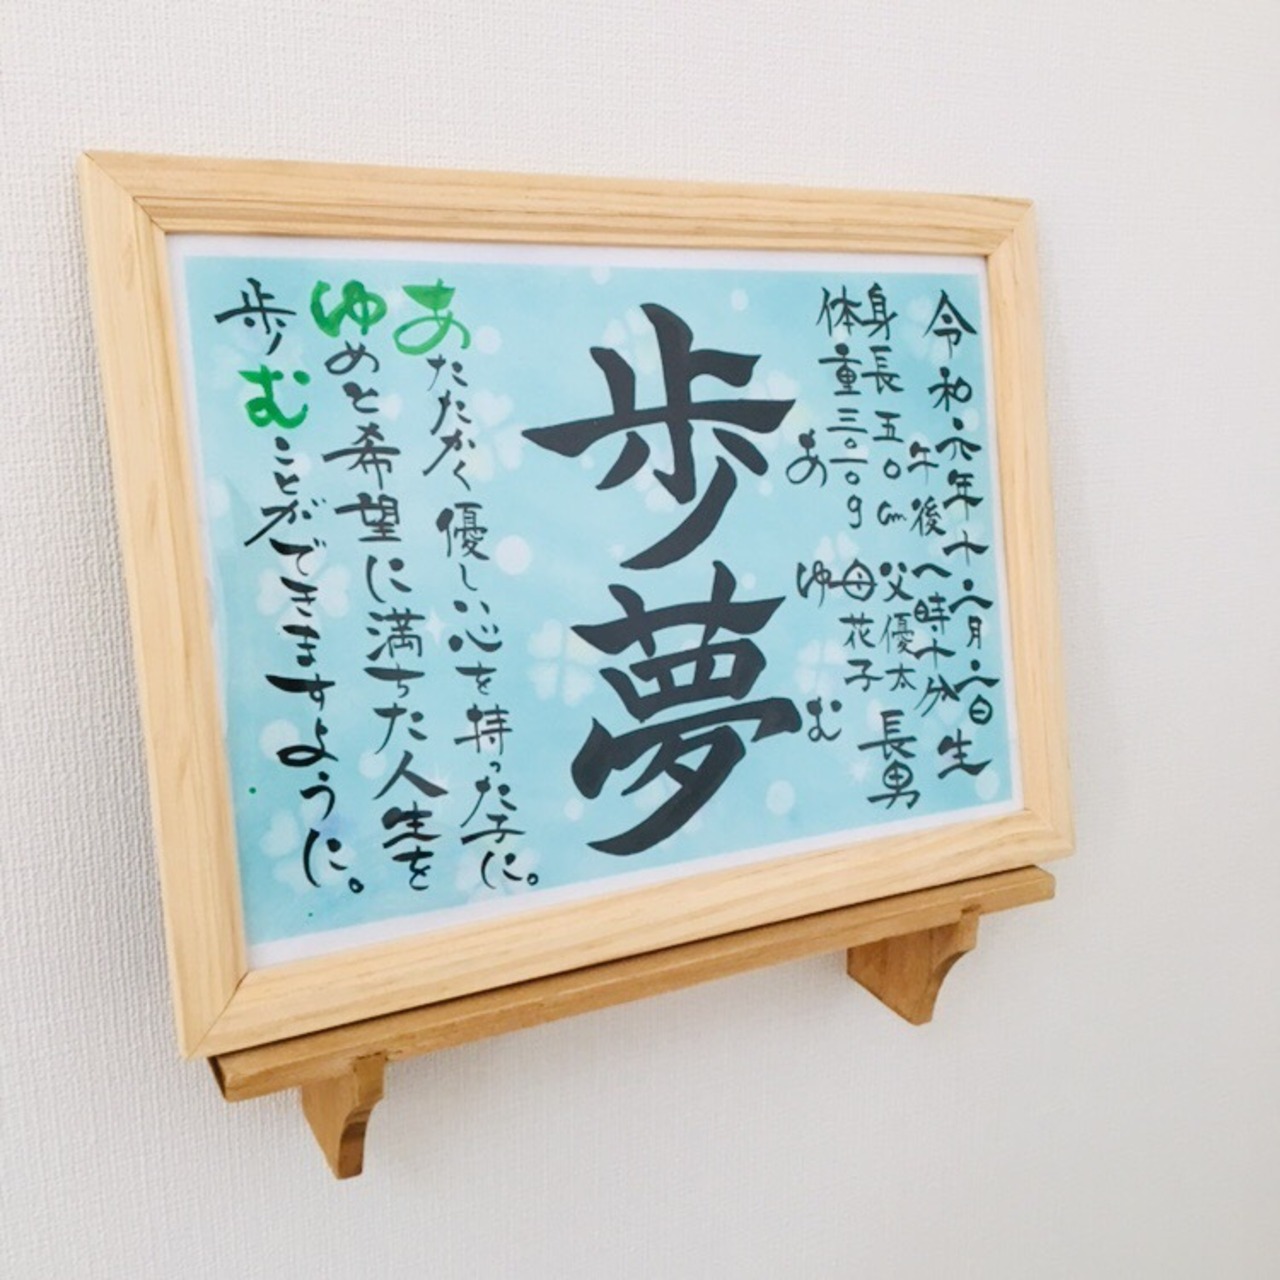 令和六年十二月二日生
午後八時十分
身長五〇cm 父優太 長男
体重三〇一〇g 母花子
あゆむ
歩夢
あたたかく優しい心を持った子に。
ゆめと希望に満ちた人生を
歩むことができますように。